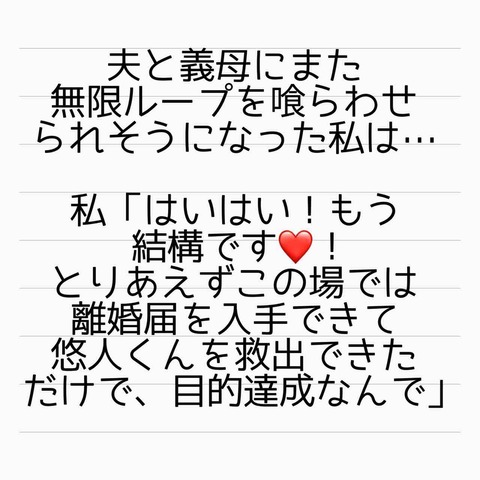 夫と義母にまた
無限ループを喰らわせ
られそうになった私は…
私「はいはい！もう
結構です❤️！
とりあえずこの場では
離婚届を入手できて
悠人くんを救出できた
だけで、目的達成なんで」